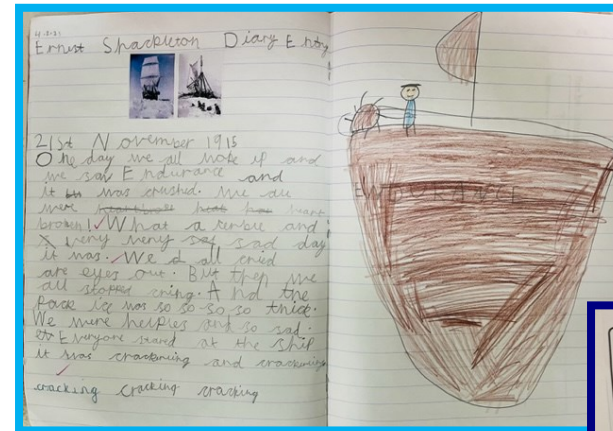 4.3.21
Ernest Shackleton Diary Entry
21st November 1915
One day we all woke if and
we saw Endurance and
it was crushed. we all
were heart
broken! What a terible and
very very sad day
it was. We d all cried
are eyes out. But then we
all stopped cring. And the
Pack ice was so so so so thick.
We were helples and so sad.
Everyone stared at the ship
it was crackmeing and crackmeing
cracking cracking cracking
ENDURANCE